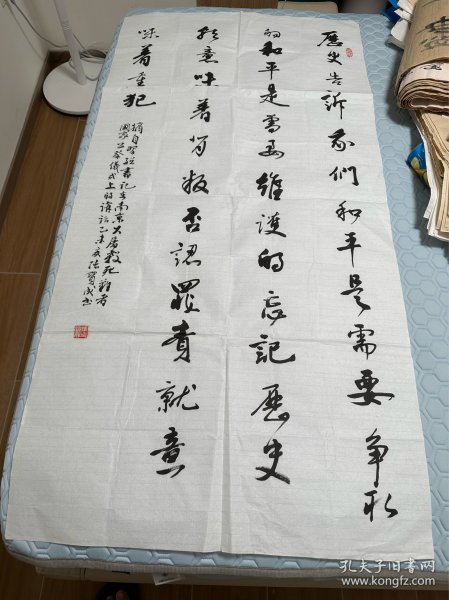 歷史告訴我們和平是需要争取
的和平是需要維護的忘記歷史
就意味着背叛否認罪責就意
味着重犯
摘自習總書記在南京大屠殺死難者
國家公祭儀式上的講話乙未夏
孔夫子旧书网
www.kongfz.com